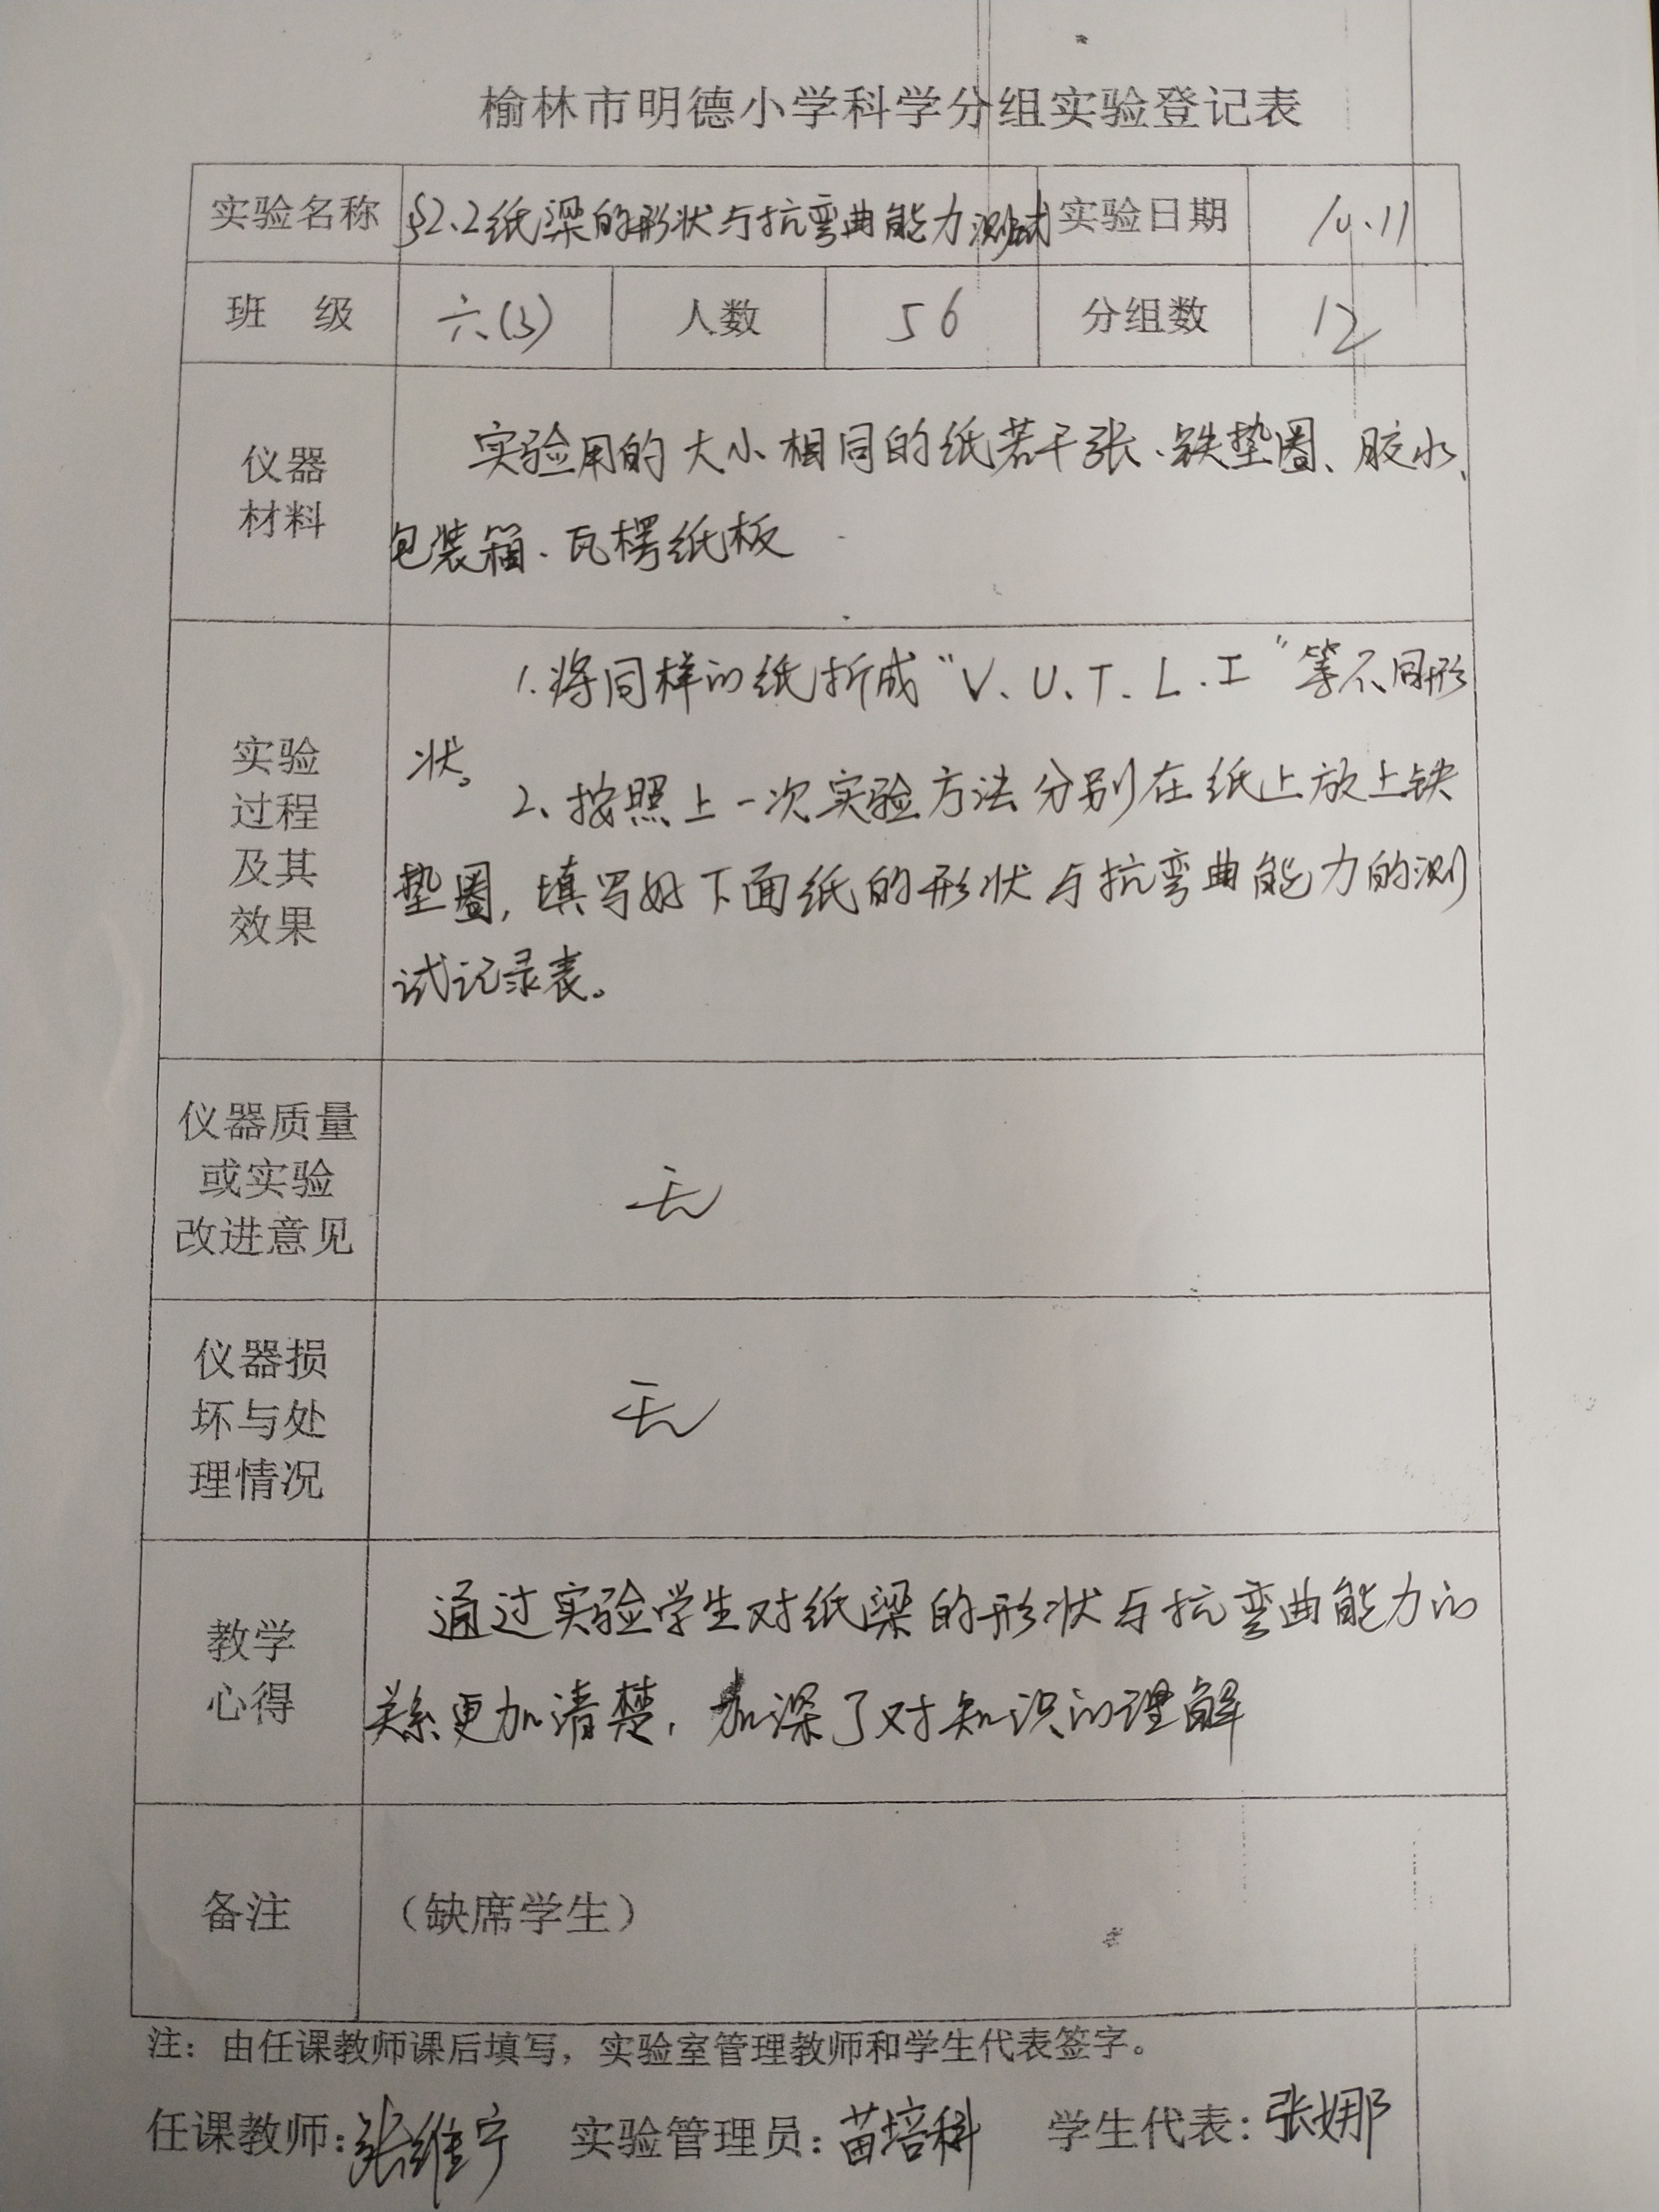 榆林市明德小学科学分组实验登记表
实验名称 §2.2纸梁的形状与抗弯曲能力测试 实验日期 10.11
班 级 六(3) 人数 56 分组数 12
仪器
材料
实验用的大小相同的纸若干张、铁垫圈、胶水、
包装箱、瓦楞纸板
实验
过程
及其
效果
1.将同样的纸折成“V、U、T、L、工”等不同形
状。
2、按照上一次实验方法分别在纸上放上铁
垫圈,填写好下面纸的形状与抗弯曲能力的测
试记录表。
仪器质量
或实验
改进意见
无
仪器损
坏与处
理情况
无
教学
心得
通过实验学生对纸梁的形状与抗弯曲能力的
关系更加清楚,加深了对知识的理解
备注 (缺席学生)
注：由任课教师课后填写，实验室管理教师和学生代表签字。
任课教师:张维宁 实验管理员:苗培科 学生代表:张娜